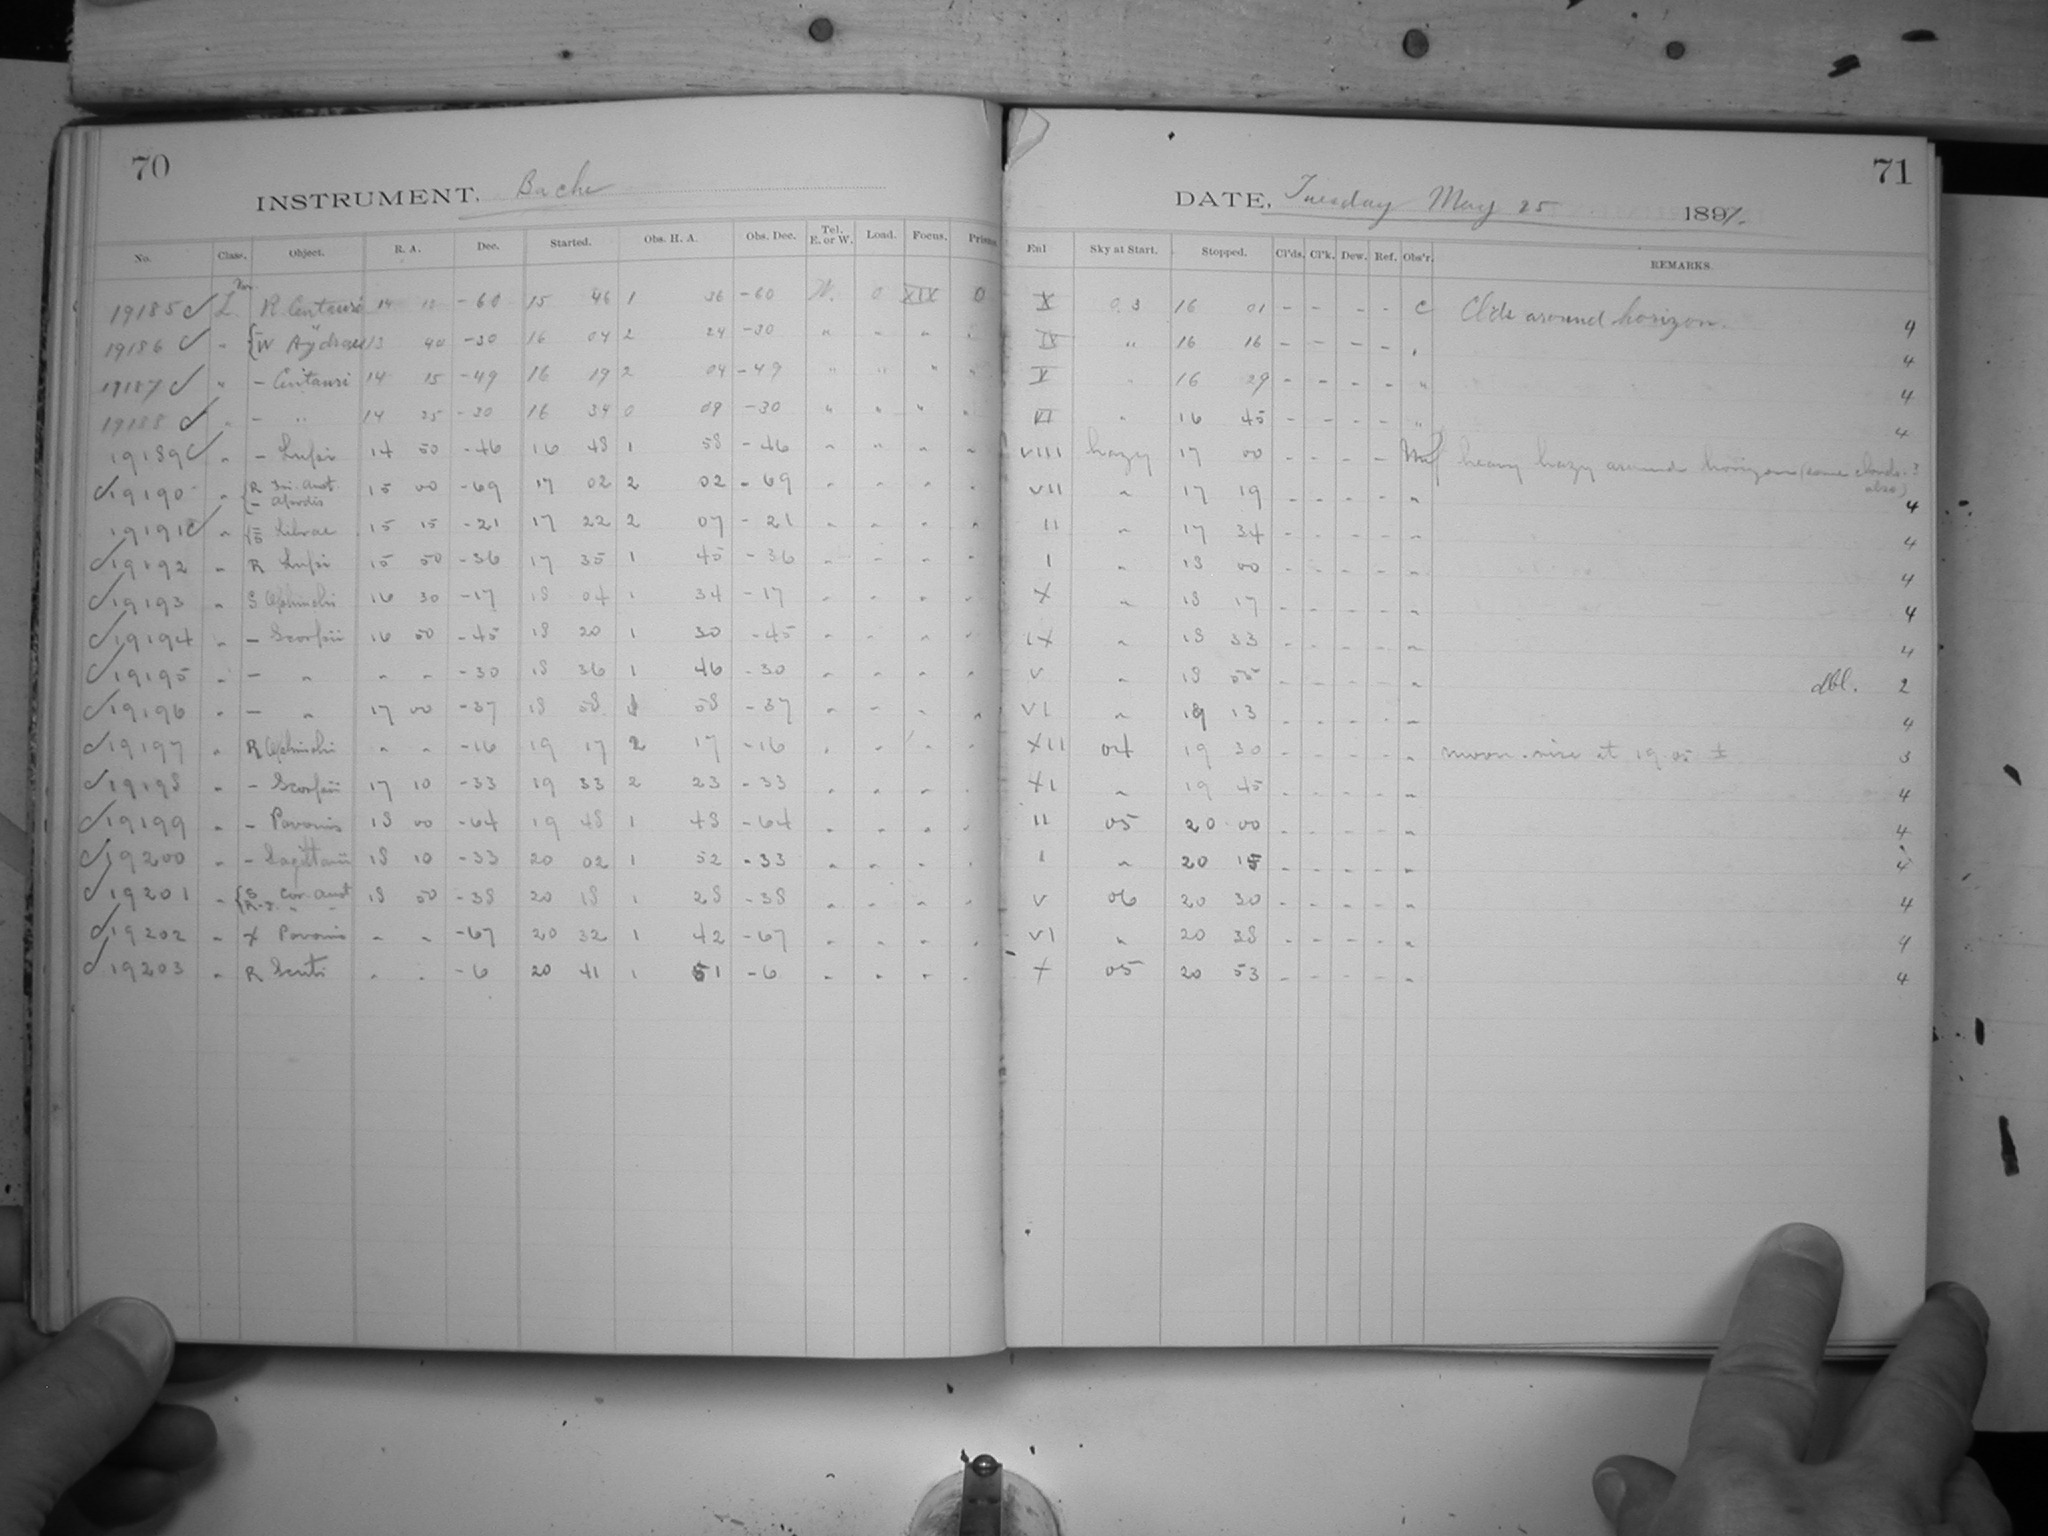 70
INSTRUMENT. Bache
No. Class. Object. R. A. Dec. Started. Obs. H. A. Obs. Dec. Tel. E. or W. Load. Focus. Prisms
19185 L. Var. R Centauri 14 10 -60 15 46 1 36 -60 W. 0 XIX 0
19186 " W Hydrae 13 40 -30 16 04 2 24 -30 " " " "
19187 " - Centauri 14 15 -49 16 19 2 04 -49 " " " "
19188 " - " 14 25 -30 16 34 0 09 -30 " " " "
19189 " - Lupi 14 50 -46 16 48 1 58 -46 " " " "
19190 " R Tri. Aust. - Apodis 15 00 -69 17 02 2 02 -69 " " " "
19191 " Librae 15 15 -21 17 22 2 07 -21 " " " "
19192 " R Lupi 15 50 -36 17 35 1 45 -36 " " " "
19193 " S Ophiuchi 16 30 -17 18 04 1 34 -17 " " " "
19194 " - Scorpii 16 50 -45 18 20 1 30 -45 " " " "
19195 " - " " " -30 18 36 1 46 -30 " " " "
19196 " - " 17 00 -37 18 58 1 58 -37 " " " "
19197 " R Ophiuchi " " -16 19 17 2 17 -16 " " " "
19198 " - Scorpii 17 10 -33 19 33 2 23 -33 " " " "
19199 " - Pavonis 18 00 -64 19 48 1 48 -64 " " " "
19200 " - Sagittarii 18 10 -33 20 02 1 52 -33 " " " "
19201 " S Cor. Aust. 18 50 -38 20 18 1 28 -38 " " " "
19202 " X Pavonis " " -67 20 32 1 42 -67 " " " "
19203 " R Scuti " " -6 20 41 1 51 -6 " " " "
71
DATE, Tuesday May 25 1897.
Enl Sky at Start. Stopped. Cl'ds. Cl'k. Dew. Ref. Obs'r. REMARKS.
X 03 16 01 - - - - C Clds around horizon. 4
IX " 16 16 - - - - " 4
V " 16 29 - - - - " 4
VI " 16 45 - - - - " 4
VIII hazy 17 00 - - - - heavy hazy around horizon (some clouds also) 3
VII " 17 19 - - - - " 4
II " 17 34 - - - - " 4
I " 18 00 - - - - " 4
X " 18 17 - - - - " 4
IX " 18 33 - - - - " 4
V " 18 55 - - - - " dbl. 2
VI " 19 13 - - - - " 4
XII 04 19 30 - - - - " moon-rise at 19 05 ± 3
XI " 19 45 - - - - " 4
II 05 20 00 - - - - " 4
I " 20 15 - - - - " 4
V 06 20 30 - - - - " 4
VI " 20 38 - - - - " 4
X 05 20 53 - - - - " 4